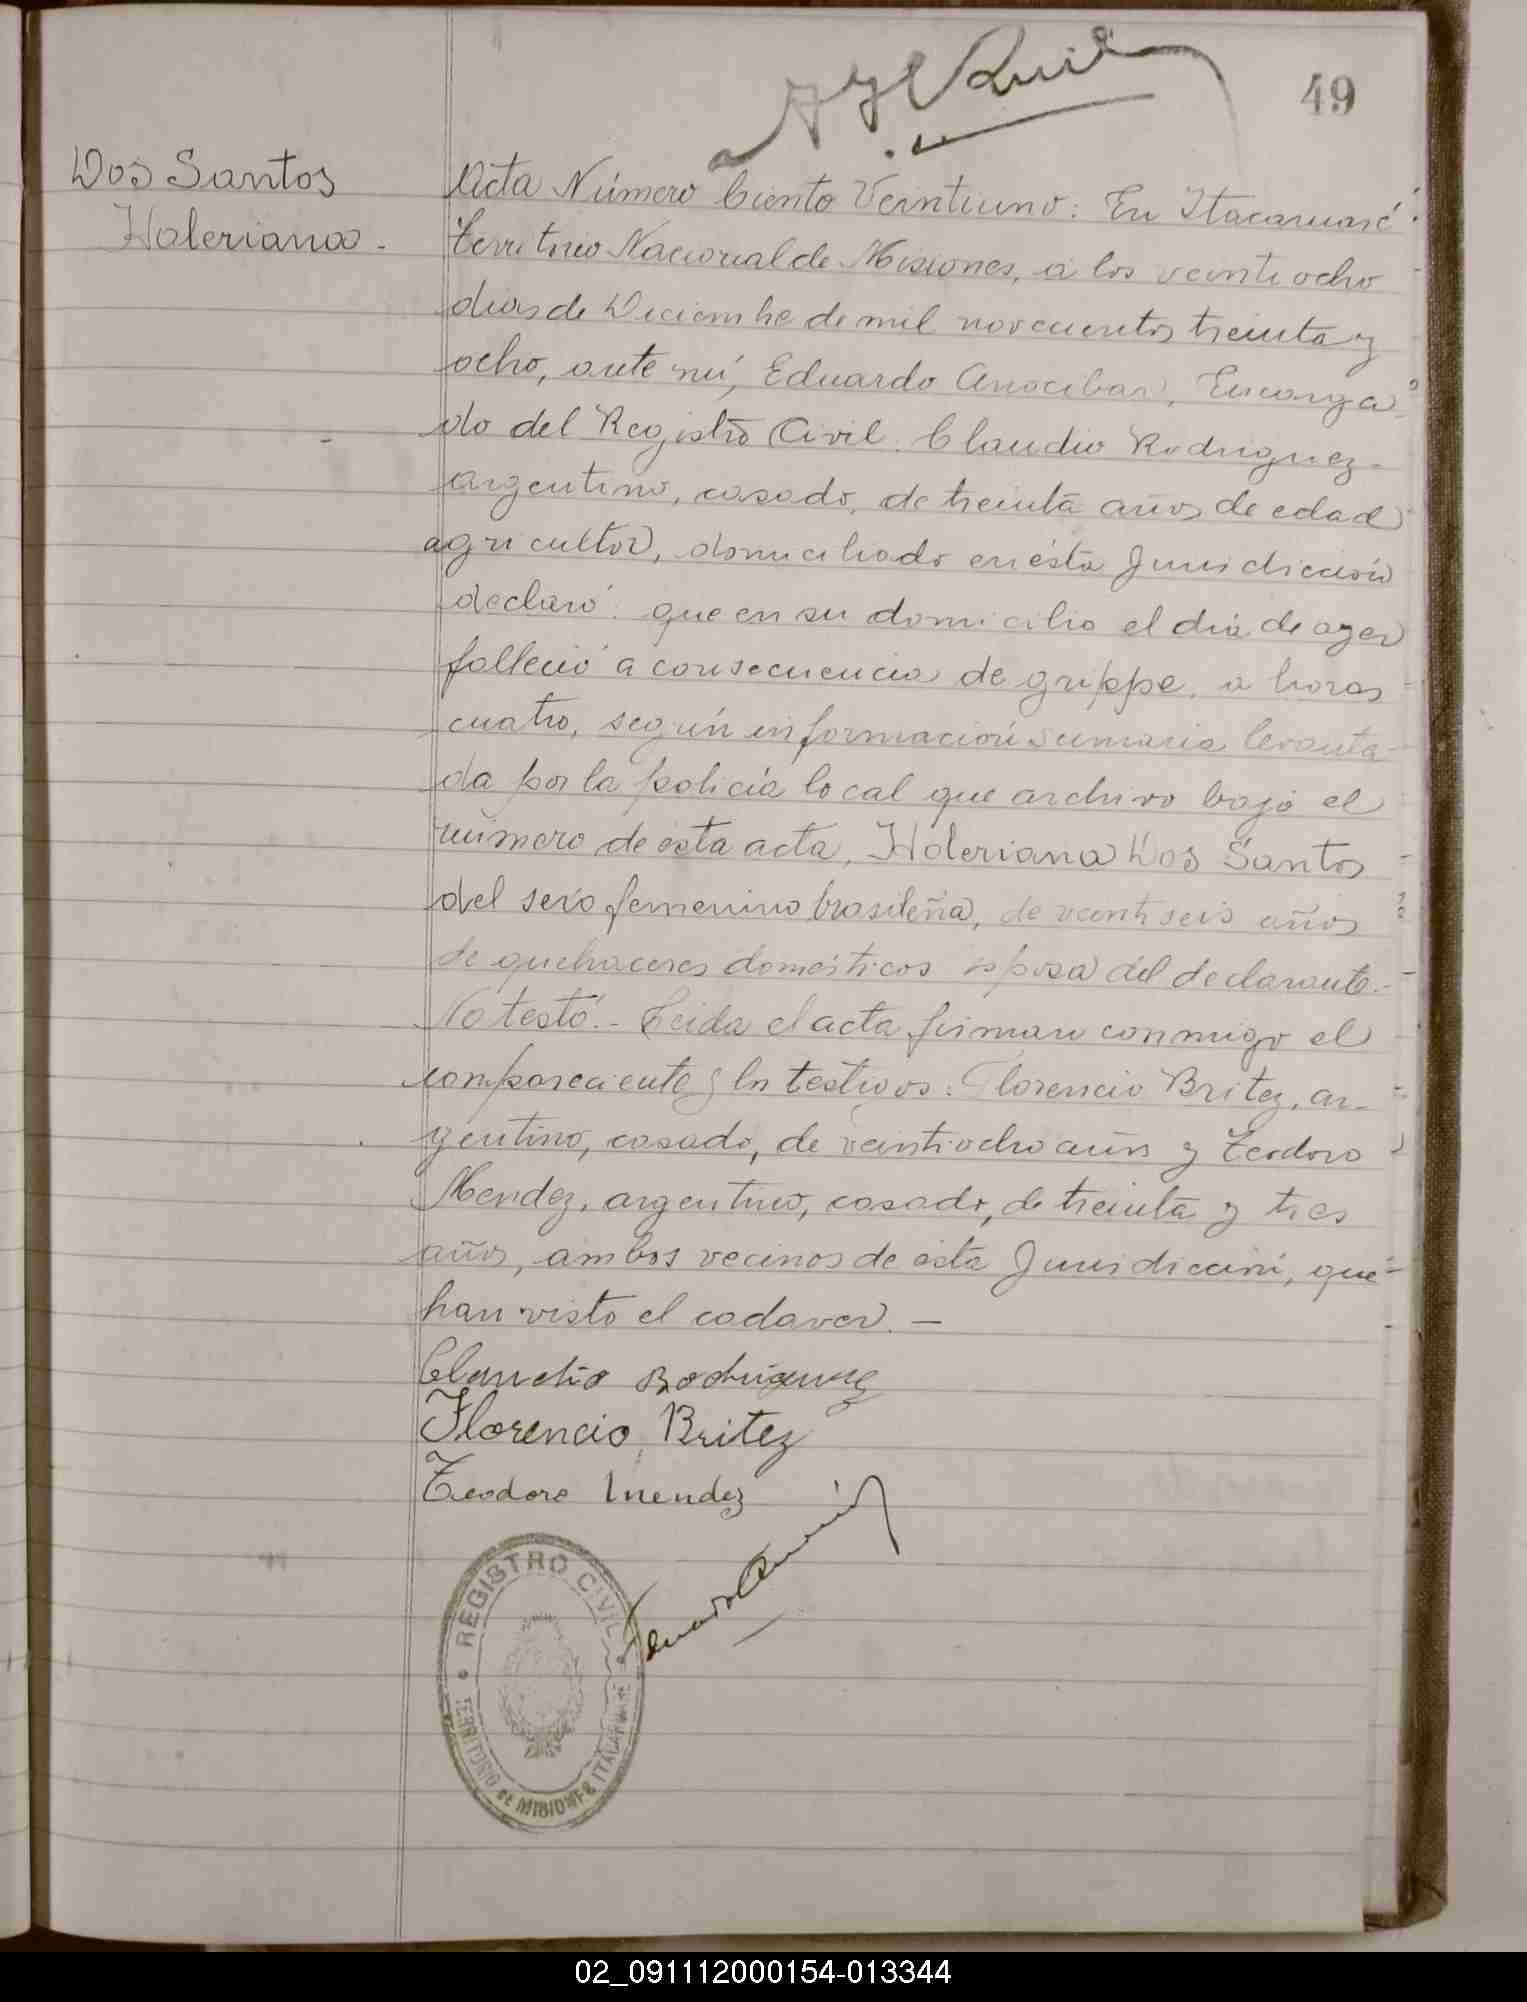 49
Dos Santos
Haleriana.
Acta Número Ciento Veintiuno: En Itacaruaré
Territorio Nacional de Misiones, a los veinti ocho
dias de Diciembre de mil novecientos treinta y
ocho, ante mí, Eduardo Arocibar, Encarga
do del Registro Civil. Claudio Rodriguez
argentino, casado, de treinta años de edad
agricultor, domiciliado en ésta Jurisdicción
declaró: que en su domicilio el dia de ayer
falleció a consecuencia de grippe, a horas
cuatro, según información sumaria levanta-
da por la policía local que archivo bajo el
número de esta acta, Haleriana Dos Santos
del sexo femenino, brasileña, de veintiseis años
de quehaceres domésticos esposa del declarante.-
No testó.- Leida el acta firman conmigo el
compareciente y los testigos: Florencio Britez, ar-
gentino, casado, de veintiocho años y Teodoro
Mendez, argentino, casado, de treinta y tres
años, ambos vecinos de ésta Jurisdicción, que
han visto el cadaver. —
Claudio Rodriguez
Florencio Britez
Teodoro Mendez
REGISTRO CIVIL
TERRITORIO DE MISIONES ITACARUARÉ
02_091112000154-013344